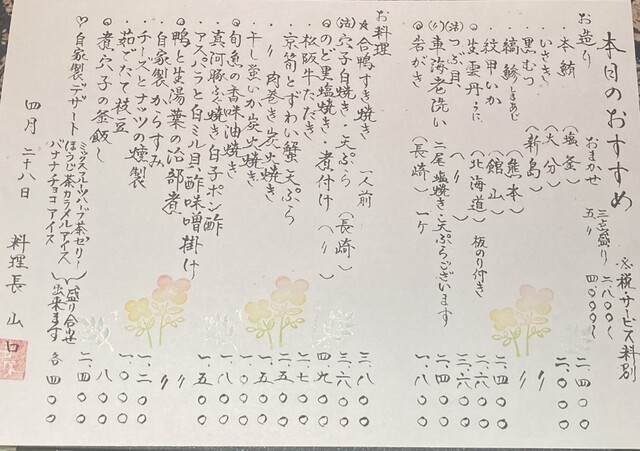 本日のおすすめ
※税・サービス料別
お造り おまかせ 三点盛り 二、八〇〇〜
五〃 四、〇〇〇〜
・本鮪 (塩釜) 二、四〇〇
・いさき (大分) 二、〇〇〇
・黒むつ (新島) 〃
・縞鯵 しまあじ (熊本) 〃
・紋甲いか (館山) 二、〇〇〇
◎生雲丹 うに (北海道) 板のり付き 二、四〇〇
(活)つぶ貝 (〃) 二、六〇〇
(〃)車海老洗い 二尾 塩焼き・天ぷらございます 二、四〇〇
◎岩がき (長崎) 一ケ 一、八〇〇
お料理
☆合鴨すき焼き 一人前 三、八〇〇
(活)穴子白焼き・天ぷら (長崎) 三、六〇〇
◎のど黒塩焼き・煮付け (〃) 四、九〇〇
・松阪牛たたき 二、七〇〇
・京筍とずわい蟹天ぷら 二、五〇〇
・〃 肉巻き炭火焼き 一、五〇〇
・干し蛍いか炭火焼き 一、〇〇〇
◎旬魚の香味油焼き 一、八〇〇
・真河豚ぶぐ焼き白子ポン酢
・アスパラと白ミル貝酢味噌掛け 一、五〇〇
◎鴨と生湯葉の治部煮 〃
・自家製からすみ 〃
・チーズとナッツの燻製 一、二〇〇
・茹でたて枝豆 八〇〇
◎煮穴子の釜飯 二、〇〇〇
♡自家製デザート
ミックスフルーツハーブ茶ゼリー
ほうじ茶カラメルアイス
バナナチョコアイス
盛り合せ出来ます 二、四〇〇
各 八〇〇
四月二十八日 料理長 山口